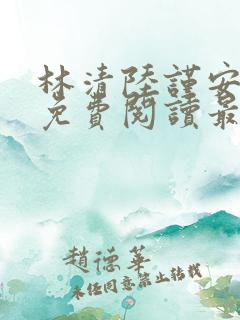 林清陸謹安
免費閱讀最
趙德華
未经同意禁止转载